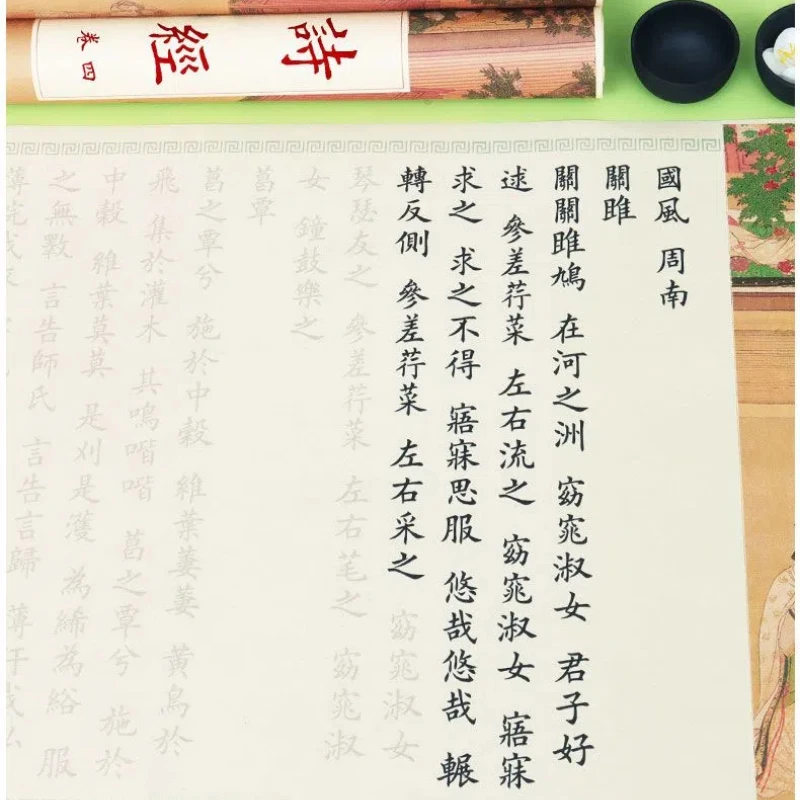 詩經
卷四
國風 周南
關雎
關關雎鳩 在河之洲 窈窕淑女 君子好
逑 參差荇菜 左右流之 窈窕淑女 寤寐
求之 求之不得 寤寐思服 悠哉悠哉 輾
轉反側 參差荇菜 左右采之 窈窕淑女
琴瑟友之 參差荇菜 左右芼之 窈窕淑
女 鐘鼓樂之
葛覃
葛之覃兮 施於中穀 維葉萋萋 黃鳥於
飛 集於灌木 其鳴喈喈 葛之覃兮 施於
中穀 維葉莫莫 是刈是濩 為絺為綌 服
之無斁 言告師氏 言告言歸 薄汙我私
薄浣我衣